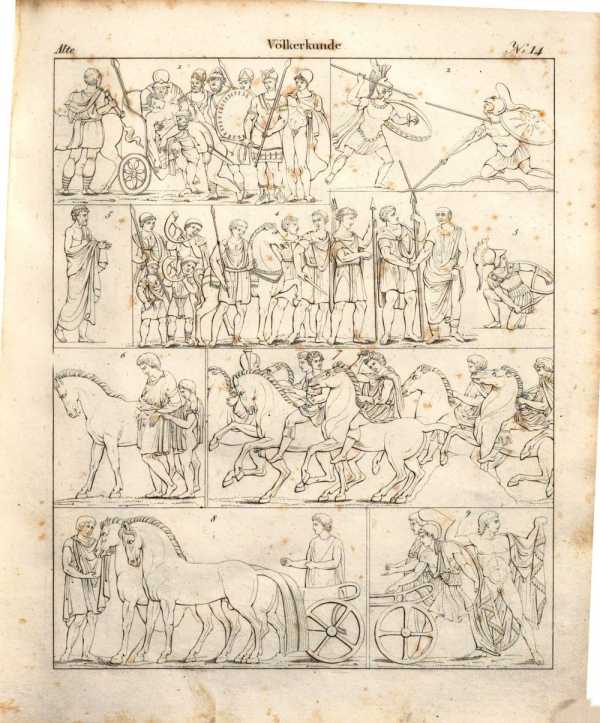 Alte
Völkerkunde
N. 14
1
2
3
4
5
6
8
9